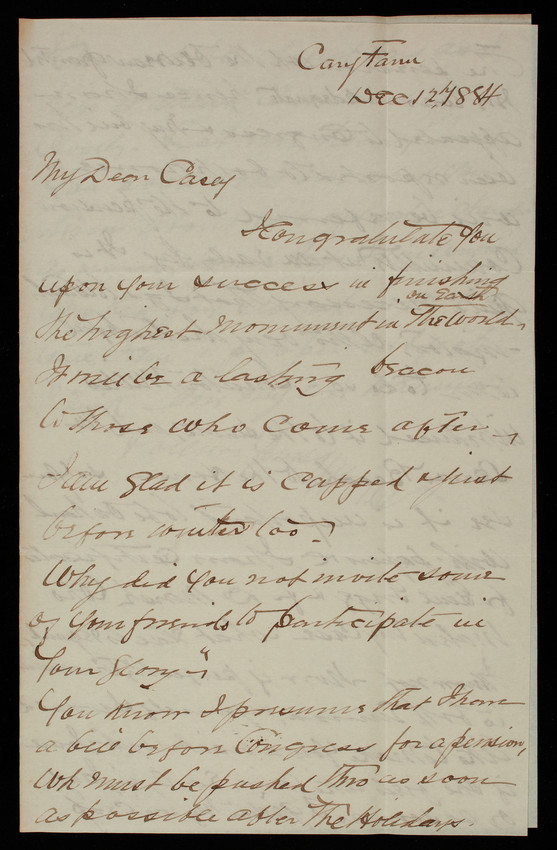 Cary Farm
Dec 12, 1884
My Dear Casey
I congratulate you
upon your success in finishing
on Earth
the highest Monument in The World.
It will be a lasting beacon
to those who come after.
I am glad it is capped & just
before winter too.
Why did you not invite some
of your friends to participate in
Your Glory –
You know I presume that I have
a bill before Congress for a pension,
wh must be pushed thro as soon
as possible after The Holidays.